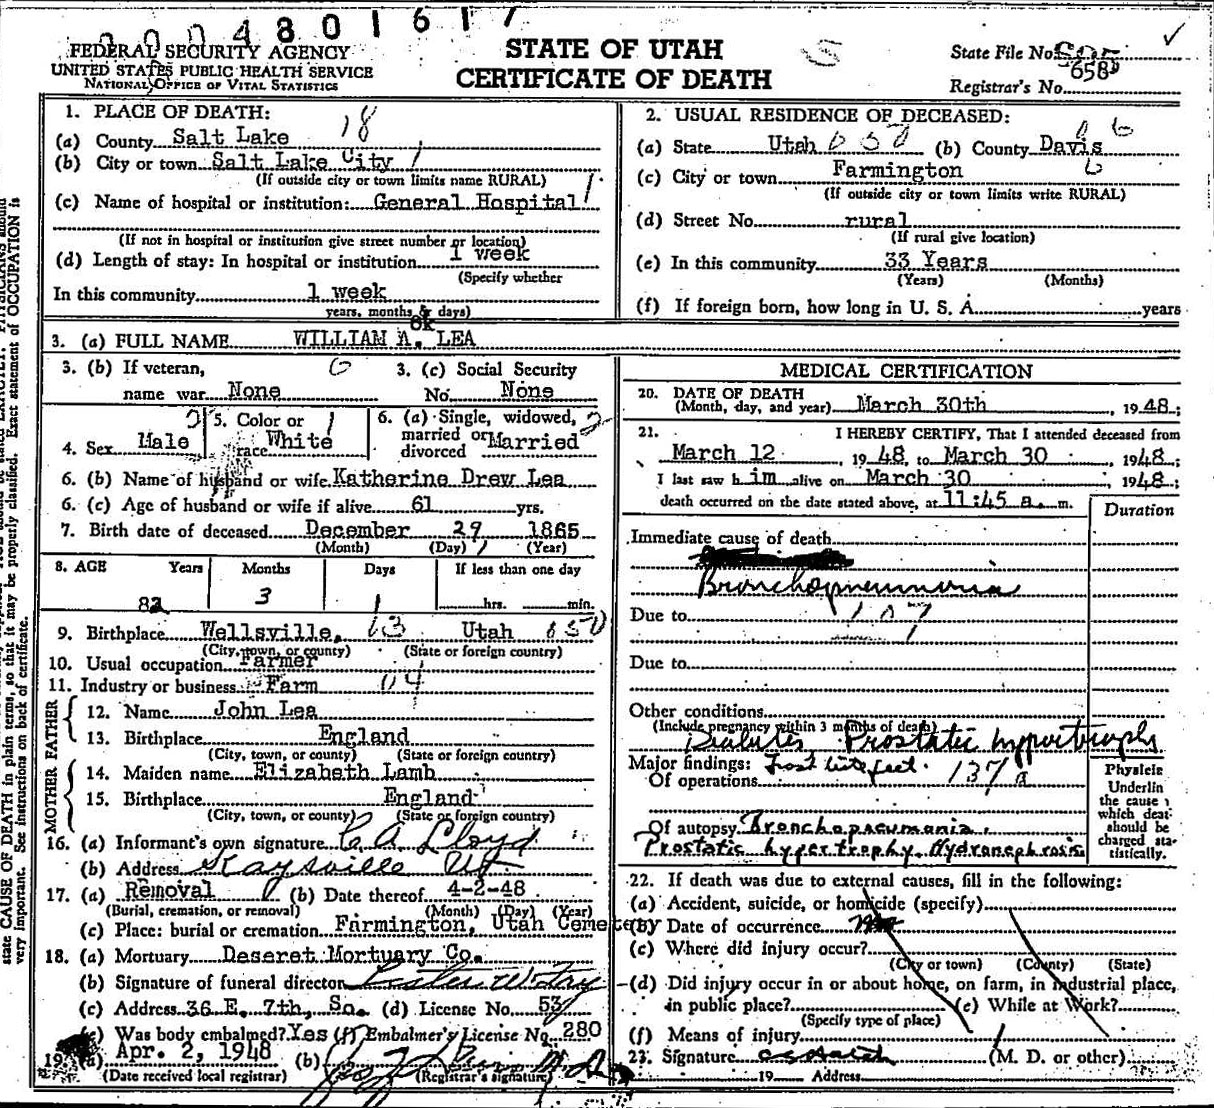 0004801617
FEDERAL SECURITY AGENCY
UNITED STATES PUBLIC HEALTH SERVICE
NATIONAL OFFICE OF VITAL STATISTICS
STATE OF UTAH
CERTIFICATE OF DEATH
State File No.
Registrar's No. 658
1. PLACE OF DEATH: 18
(a) County Salt Lake
(b) City or town Salt Lake City 1
(If outside city or town limits name RURAL)
(c) Name of hospital or institution: General Hospital 1
(If not in hospital or institution give street number or location)
(d) Length of stay: In hospital or institution 1 week
(Specify whether
In this community 1 week
years, months or days)
2. USUAL RESIDENCE OF DECEASED:
(a) State Utah (b) County Davis 6
(c) City or town Farmington
(If outside city or town limits write RURAL)
(d) Street No. rural
(If rural give location)
(e) In this community 33 Years
(Years) (Months)
(f) If foreign born, how long in U. S. A. years
ok
3. (a) FULL NAME WILLIAM A. LEA
3. (b) If veteran, 0 3. (c) Social Security
name war None No. None
4. Sex Male 5. Color or race White 6. (a) Single, widowed, married or divorced Married 2
6. (b) Name of husband or wife Katherine Drew Lea
6. (c) Age of husband or wife if alive 61 yrs.
7. Birth date of deceased December 29 1865
(Month) (Day) (Year)
8. AGE Years Months Days If less than one day
82 3 1 hrs. min.
9. Birthplace Wellsville, 03 Utah 650
(City, town, or county) (State or foreign country)
10. Usual occupation Farmer
11. Industry or business Farm 04
FATHER
12. Name John Lea
13. Birthplace England
(City, town, or county) (State or foreign country)
MOTHER
14. Maiden name Elizabeth Lamb
15. Birthplace England
(City, town, or county) (State or foreign country)
16. (a) Informant's own signature C. A. Lloyd
(b) Address Kaysville Ut
17. (a) Removal (b) Date thereof 4-2-48
(Burial, cremation, or removal) (Month) (Day) (Year)
(c) Place: burial or cremation Farmington, Utah Cemetery
18. (a) Mortuary Deseret Mortuary Co.
(b) Signature of funeral director
(c) Address 36 E. 7th, So. (d) License No. 53
(e) Was body embalmed? Yes (f) Embalmer's License No. 280
19. (a) Apr. 2, 1948 (b)
(Date received local registrar) (Registrar's signature)
MEDICAL CERTIFICATION
20. DATE OF DEATH
(Month, day, and year) March 30th, 1948;
21. I HEREBY CERTIFY, That I attended deceased from
March 12, 1948, to March 30, 1948;
I last saw him alive on March 30, 1948;
death occurred on the date stated above, at 11:45 a. m.
Duration
Immediate cause of death
Bronchopneumonia
Due to 107
Due to
Other conditions
(Include pregnancy within 3 months of death)
Diabetes, Prostatic hypertrophy
Major findings: Frost bite feet. 137a
Of operations
Of autopsy Bronchopneumonia.
Prostatic hypertrophy. Hydronephrosis
Physicia
Underlin
the cause
which deat
should be
charged sta-
tistically.
22. If death was due to external causes, fill in the following:
(a) Accident, suicide, or homicide (specify)
(b) Date of occurrence
(c) Where did injury occur?
(City or town) (County) (State)
(d) Did injury occur in or about home, on farm, in industrial place,
in public place? (e) While at Work?
(Specify type of place)
(f) Means of injury
23. Signature (M. D. or other)
19 Address
state CAUSE OF DEATH in plain terms, so that it may be properly classified. Exact statement of OCCUPATION is
very important. See instructions on back of certificate.